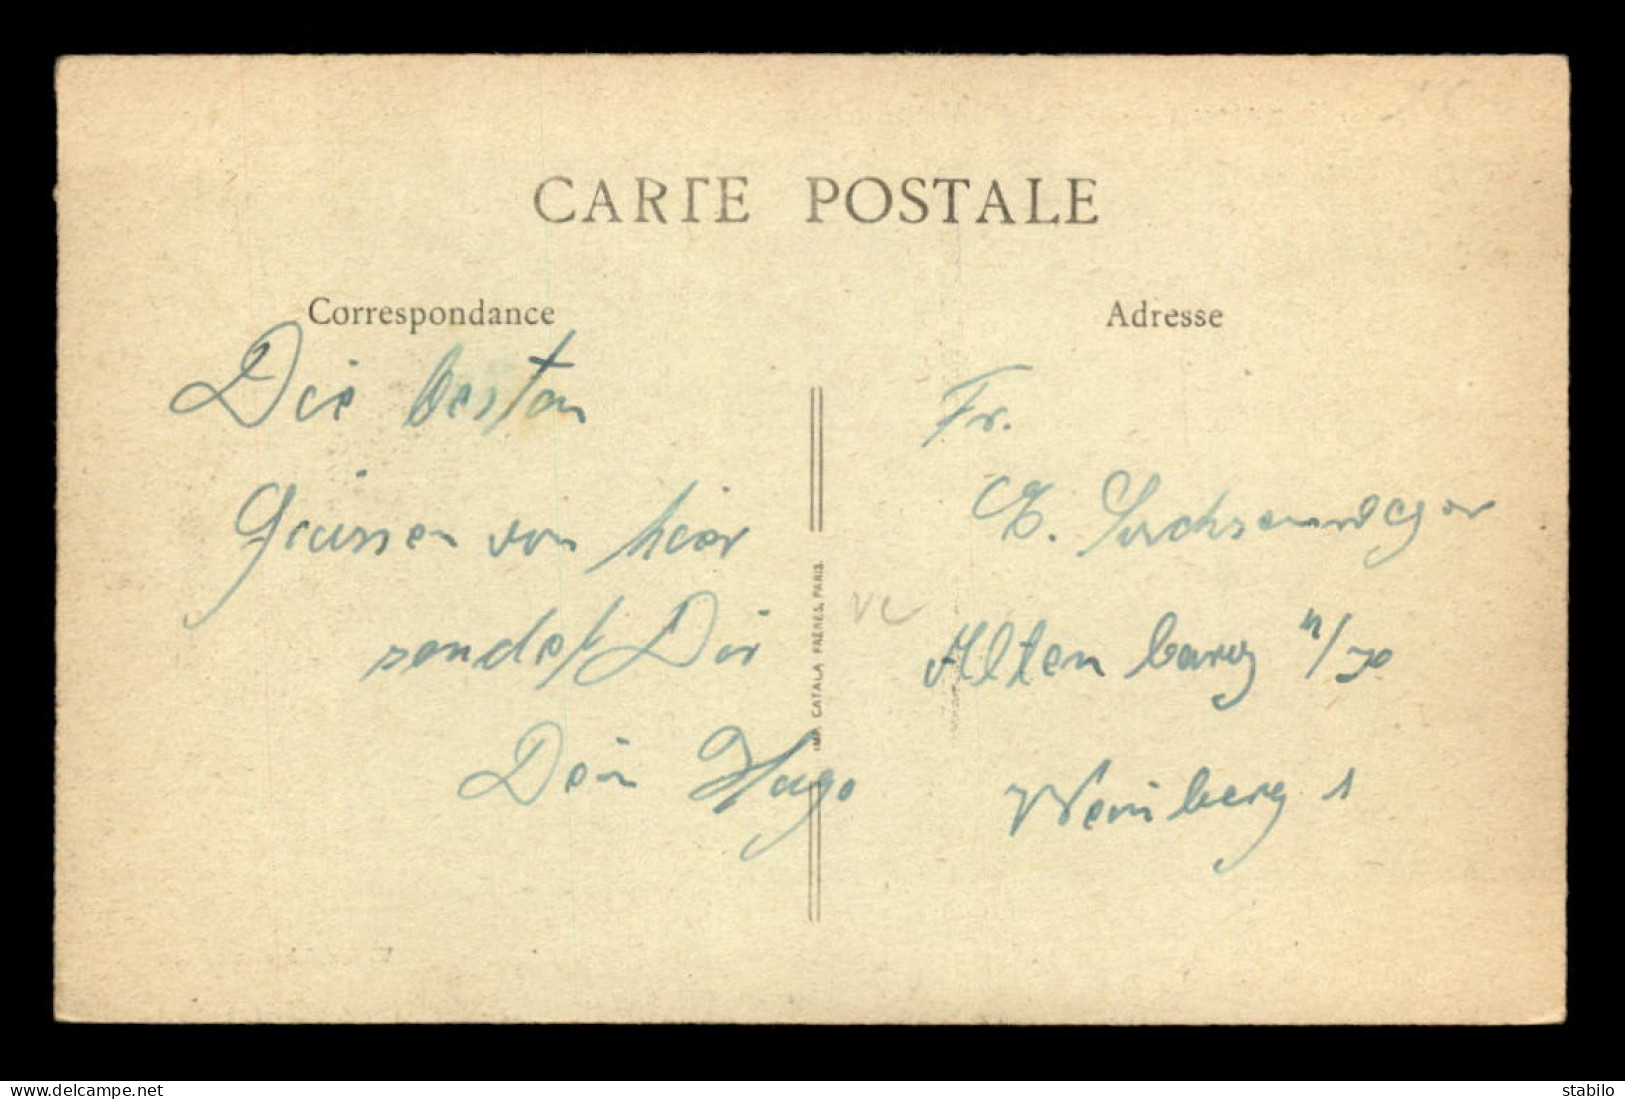 CARTE POSTALE
Correspondance
Die besten
Grüssen von hier
sendet Dir
Dein Hugo
IMP. CATALA FRÈRES, PARIS.
VC
Adresse
Fr.
E. Sachsenweger
Altenburg
Weinberg 1
www.delcampe.net
stabilo